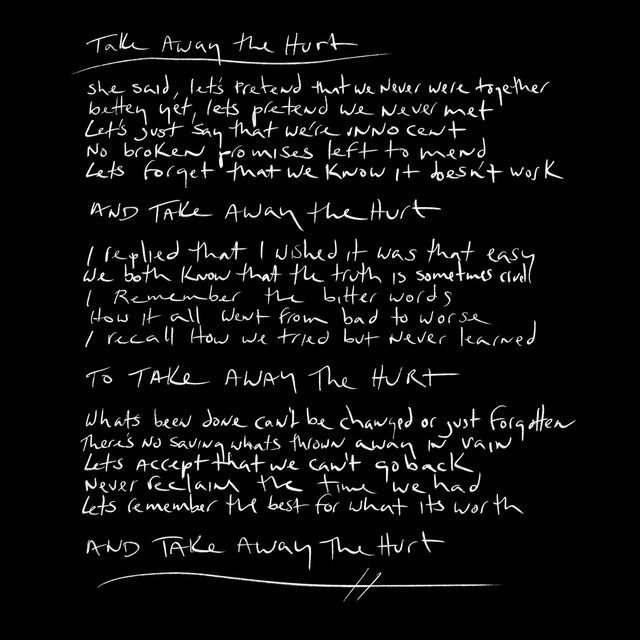 Take Away the Hurt
she said, let's pretend that we never were together
better yet, lets pretend we never met
Let's just say that we're innocent
No broken promises left to mend
Lets forget that we know it doesn't work
AND TAKE AWAY the Hurt
I replied that I wished it was that easy
We both know that the truth is sometimes cruel
I Remember the bitter words
How it all went from bad to worse
I recall How we tried but never learned
TO TAKE AWAY The HURT
Whats been done can't be changed or just forgotten
There's no saving whats thrown away in vain
Lets Accept that we can't go back
Never reclaim the time we had
Lets remember the best for what its worth
AND TAKE AWAY The Hurt